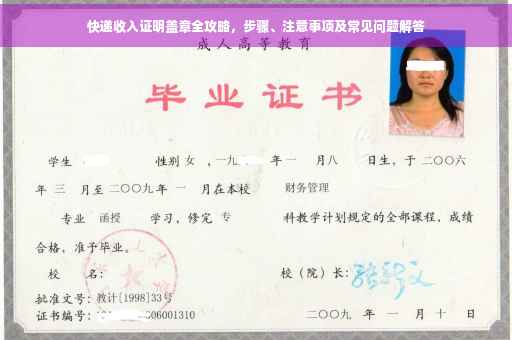 快递收入证明盖章全攻略，步骤、注意事项及常见问题解答
成人高等教育
毕业证书
学生 性别 女 ，一九 年 一 月八 日生，于 二〇〇六
年 三 月至 二〇〇九 年 一 月在本校 财务管理
专业 函授 学习，修完 专 科教学计划规定的全部课程，成绩
合格，准予毕业。
校 名： 校（院）长：
批准文号：教计[1998]33号
证书编号： 06001310 二〇〇九 年 一 月 十 日